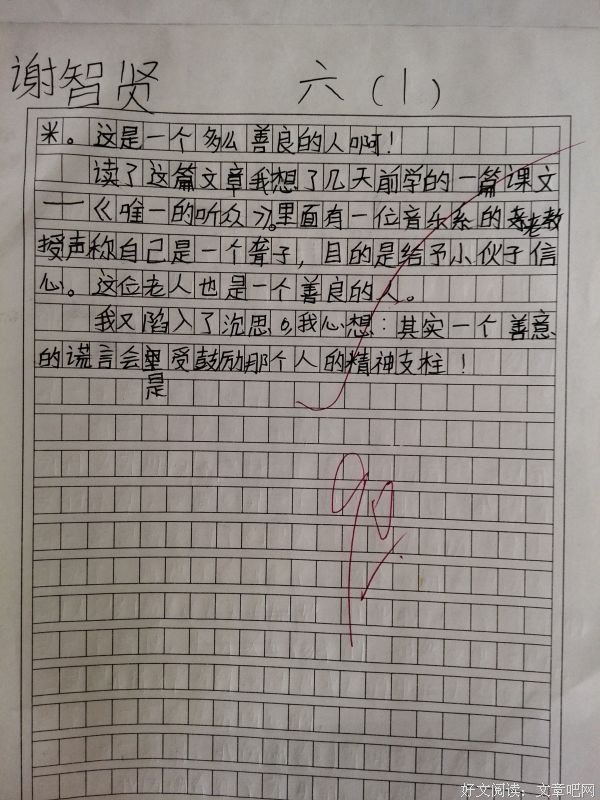 谢智贤 六(1)
米。这是一个多么善良的人啊!
读了这篇文章我想了几天前学的一篇课文
——《唯一的听众》。里面有一位音乐系的老教
授声称自己是一个聋子,目的是给予小伙子信
心。这位老人也是一个善良的人。
我又陷入了沉思。我心想:其实一个善意
的谎言会是受鼓励那个人的精神支柱!
90
好文阅读:文章吧网